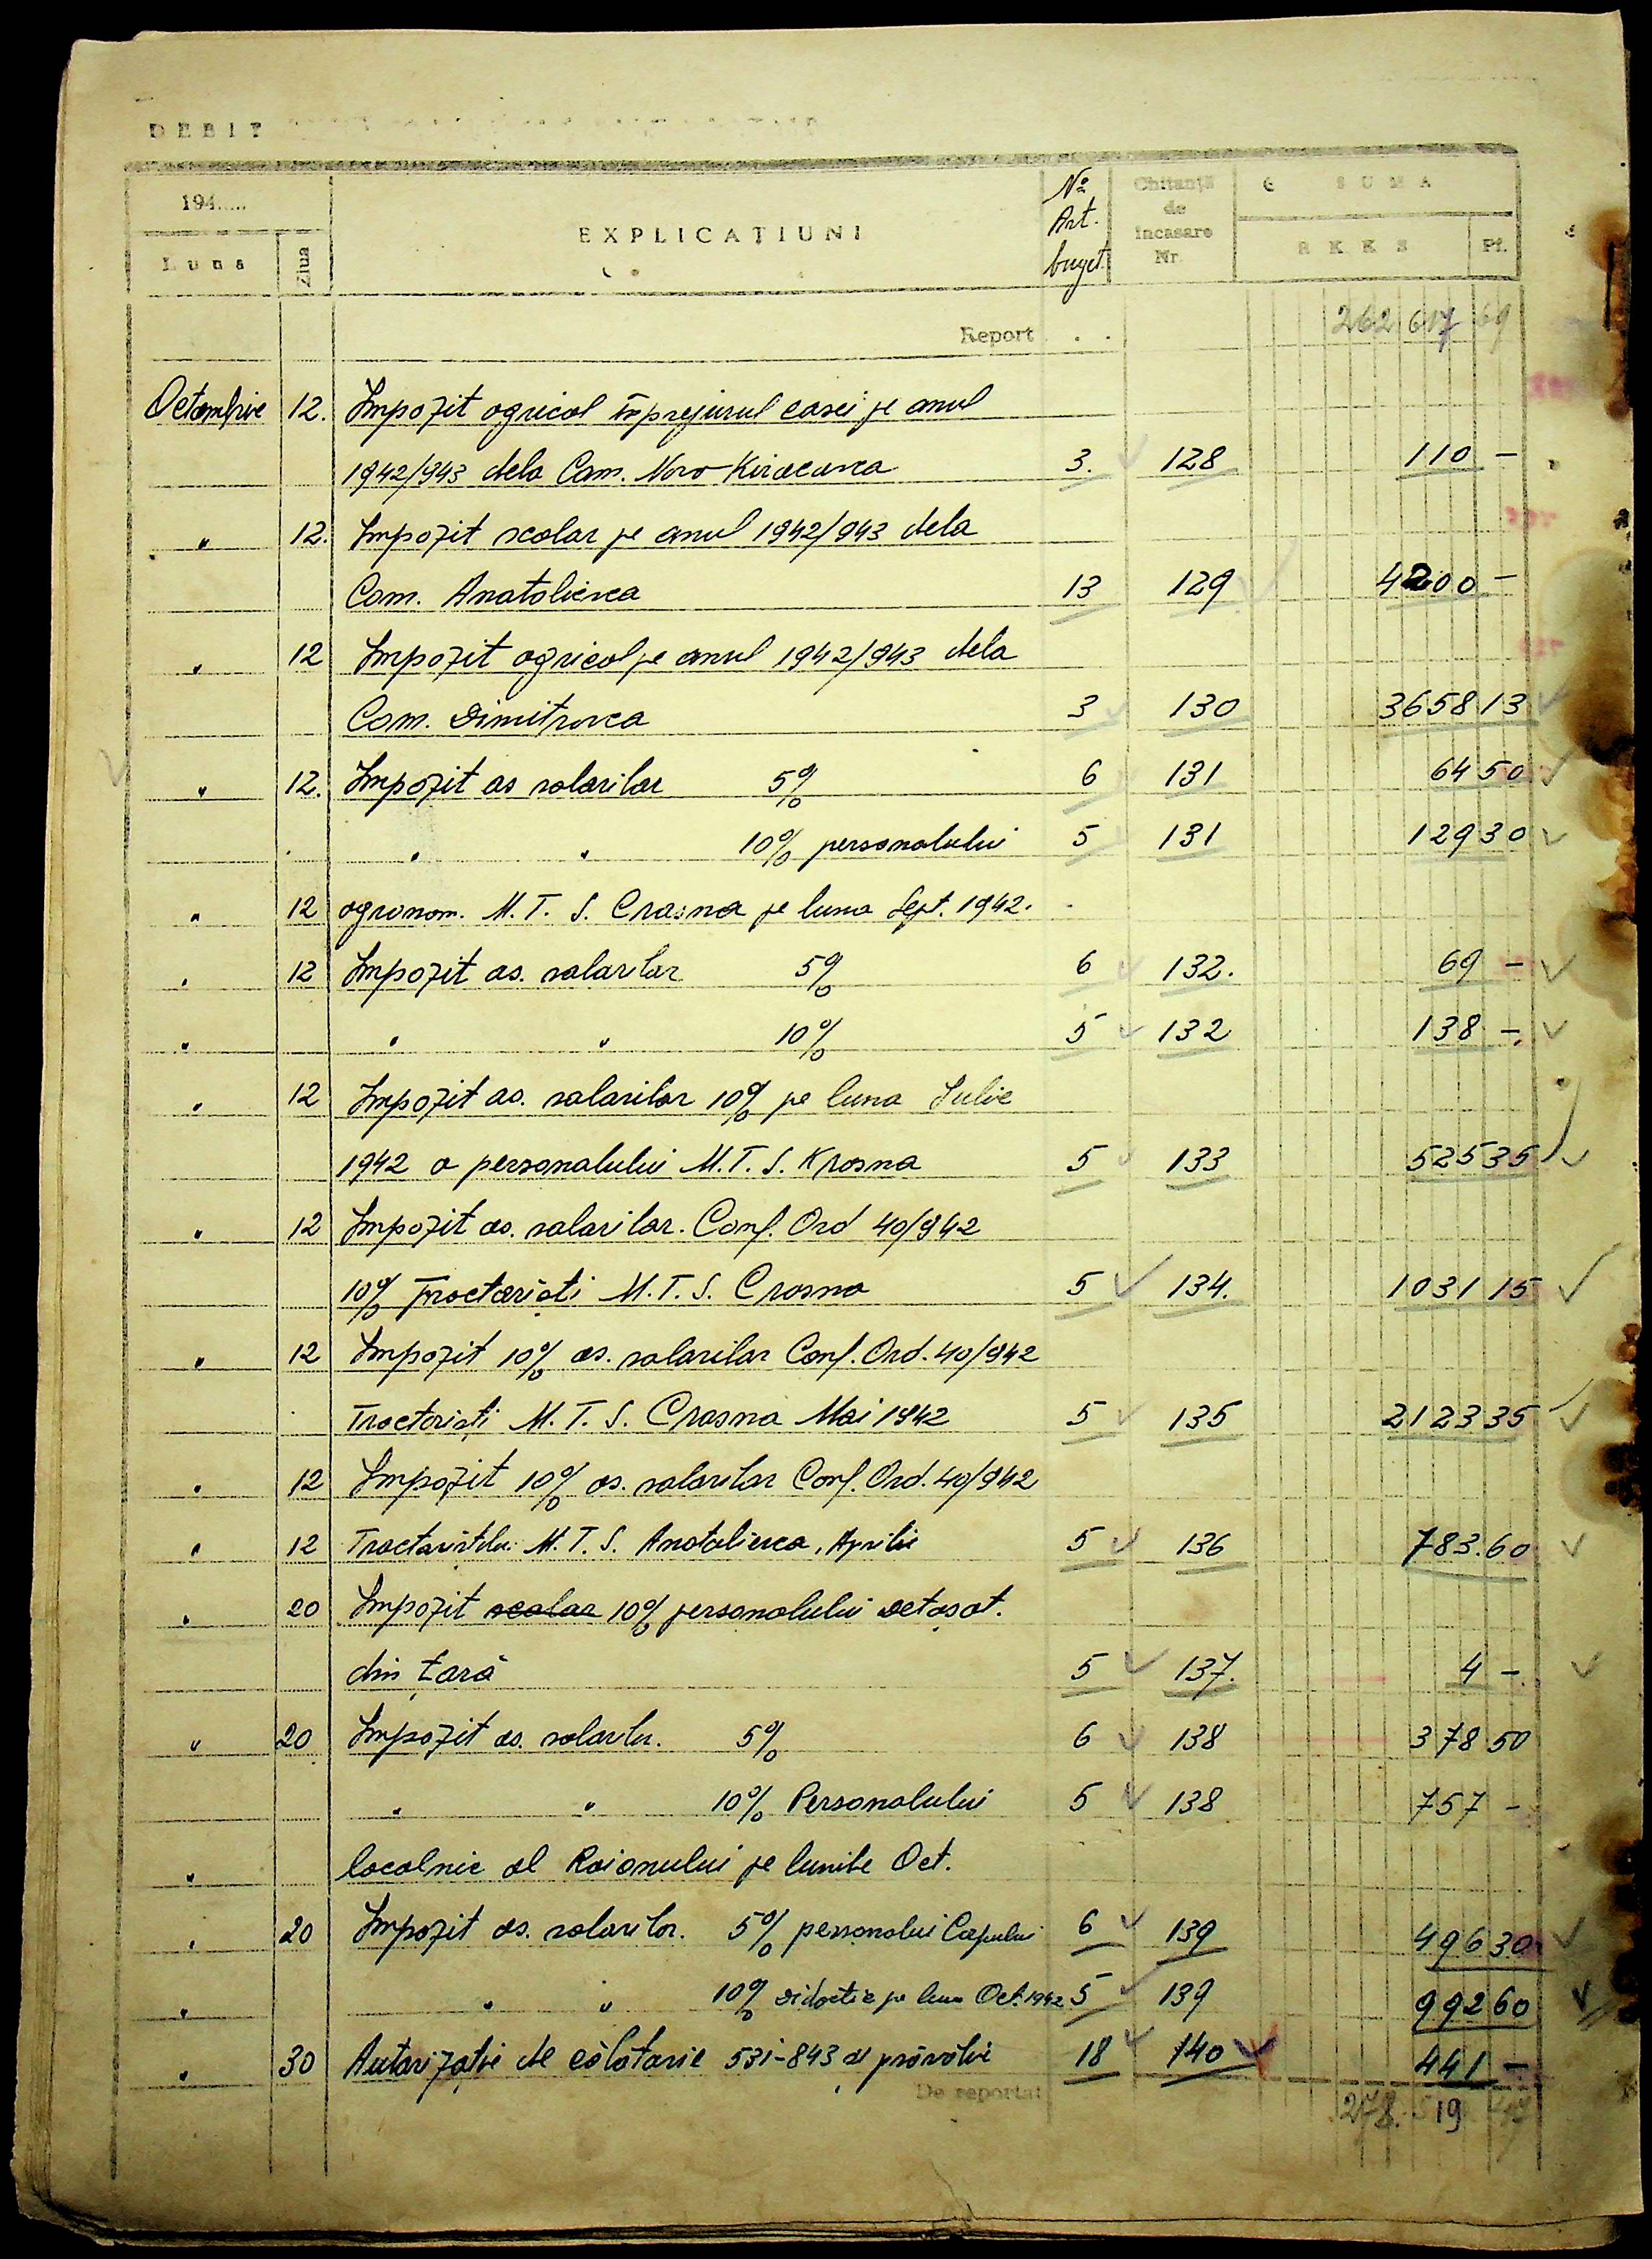 DEBIT
194.....
Luna
Ziua
EXPLICAȚIUNI
No Art. buget.
Chitanță de încasare Nr.
SUMA
RKKS Pf.
Report . . 262 617 69
Octombrie 12. Impozit agricol împrejurul casei pe anul
1942/943 dela Com. Novo-Kiraeavca 3. 128 110 -
" 12. Impozit scolar pe anul 1942/943 dela
Com. Anatolievca 13 129 4200 -
" 12 Impozit agricol pe anul 1942/943 dela
Com. Dimitrovca 3 130 3658 13
" 12. Impozit as salarilor 5% 6 131 64 50
" " 10% personalului 5 131 129 30
" 12 agronom. M. T. S. Crasna pe luna Sept. 1942.
" 12 Impozit as. salarilor 5% 6 132. 69 -
" " " 10% 5 132 138 -
" 12 Impozit as. salarilor 10% pe luna Iulie
1942 a personalului M.T.S. Krasna 5 133 525 35
" 12 Impozit as. salarilor. Conf. Ord 40/942
10% Tractoristi M.T.S. Crasna 5 134. 1031 15
" 12 Impozit 10% as. salarilor Conf. Ord. 40/942
Tractoristi M. T. S. Crasna Mai 1942 5 135 2123 35
" 12 Impozit 10% as. salarilor Conf. Ord. 40/942
" 12 M. T. S. Anatolievca, Aprilie 5 136 783.60
" 20 Impozit scolar 10% personalului detașat.
din țară 5 137. 4 -
" 20 Impozit as. salarilor. 5% 6 138 378 50
" " 10% Personalului 5 138 757 -
" localnic al Raionului pe lunile Oct.
" 20 Impozit as. salarilor. 5% 6 139 496 30
" " " 10% didactic pe luna Oct. 1942 5 139 992 60
" 30 Autorizație de călătorie 531-843 18 140 441 -
De reportat 278. 519